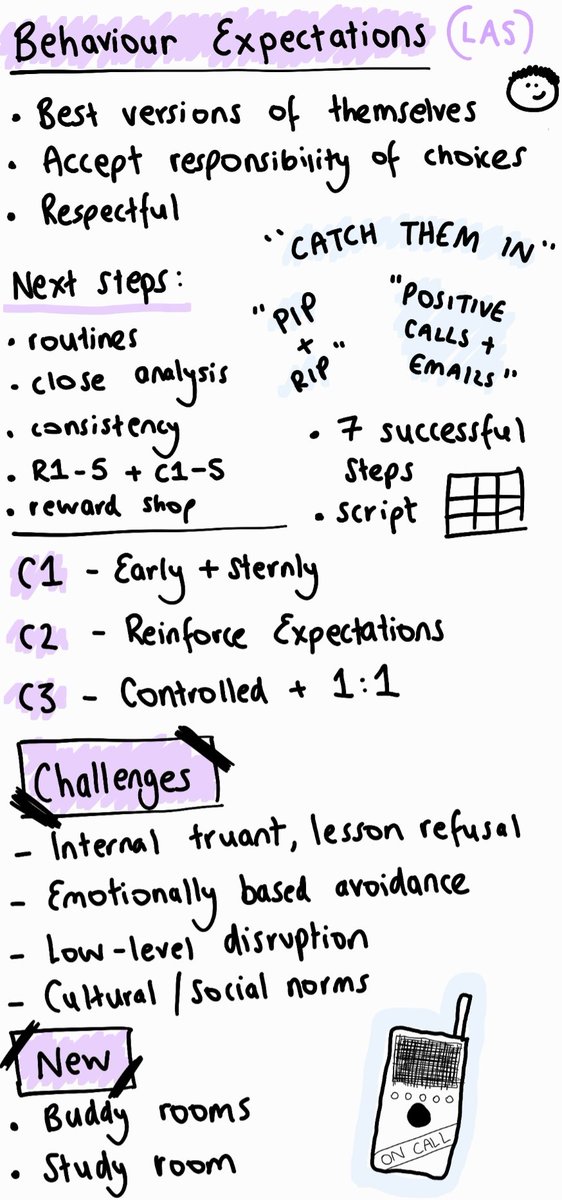 Behaviour Expectations (LAS)
• Best versions of themselves
• Accept responsibility of choices
• Respectful
"CATCH THEM IN"
Next steps:
• routines
• close analysis
• consistency
• R1-5 + C1-5
• reward shop
"PIP
+
RIP"
"POSITIVE
CALLS +
EMAILS"
• 7 successful
steps
• script
C1 - Early + sternly
C2 - Reinforce Expectations
C3 - Controlled + 1:1
Challenges
- Internal truant, lesson refusal
- Emotionally based avoidance
- Low-level disruption
- Cultural / Social norms
New
• Buddy rooms
• Study room
ON CALL